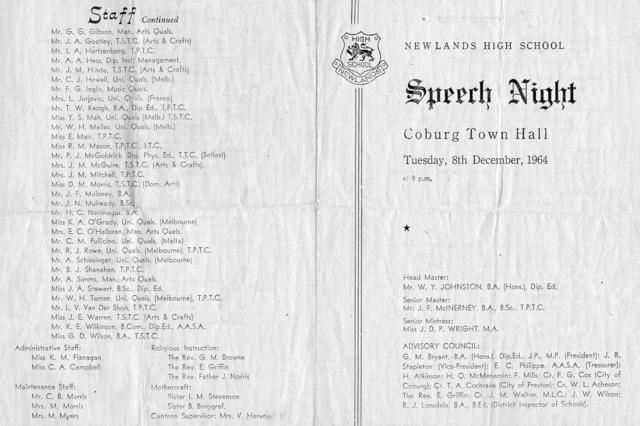 Staff Continued
Mr. G. G. Gibson, Man. Arts Quals.
Mr. J. A. Goatley, T.S.T.C. (Arts & Crafts)
Mr. I. A. Hertzenberg, T.P.T.C.
Mr. A. A. Hess, Dip. Inst. Management.
Mr. J. M. Hinde, T.S.T.C. (Arts & Crafts)
Mr. C. J. Howell, Uni. Quals. (Melb.)
Mr. F. G. Inglis, Music Quals.
Mrs. L. Jurjevic, Uni. Quals. (France)
Mr. T. W. Keogh, B.A., Dip Ed., T.P.T.C.
Miss Y. S. Mah, Uni Quals (Melb.) T.S.T.C.
Mr. W. H. Meiles, Uni. Quals. (Melb.)
Miss E. Malc, T.P.T.C.
Miss R. M. Mason, T.P.T.C., I.T.C.
Mr. P. J. McGoldrick, Dip. Phys. Ed., T.T.C. (Belfast)
Mrs. J. M. McGuire, T.S.T.C. (Arts & Crafts).
Mrs. J. M. Mitchell, T.P.T.C.
Miss D. M. Morris, T.S.T.C. (Dom. Arts)
Mr. J. F. Moloney, B.A.
Mr. J. N. Mulready, B.Sc.
Mr. H. C. Neomagus, B.A.
Miss K. A. O'Grady, Uni. Quals. (Melbourne)
Mrs. E. C. O'Halloran, Man. Arts Quals.
Mr. C. M. Pullicino, Uni. Quals, (Malta)
Mr. R. J. Rowe, Uni. Quals. (Melbourne), T.P.T.C.
Mr. A. Schlesinger, Uni. Quals. (Melbourne)
Mr. B. J. Shanahan, T.P.T.C.
Mr. A. Simms, Man. Arts Quals.
Miss J. A. Stewart, B.Sc., Dip. Ed.
Mr. W. H. Turner, Uni. Quals. (Melbourne), T.P.T.C.
Mr. L. V. Van Der Sluys, T.P.T.C.
Miss J. E. Warren, T.S.T.C. (Arts & Crafts)
Mr. K. E. Wilkinson, B.Com., Dip.Ed., A.A.S.A.
Miss G. D. Wilson, B.A., T.S.T.C.
Administrative Staff:
Miss K. M. Flanagan
Miss C. A. Campbell
Maintenance Staff:
Mr. C. B. Morris
Mrs. M. Morris
Mrs. M. Myers
Religious Instruction:
The Rev. G. M. Browne
The Rev. E. Griffin
The Rev. Father J. Norris
Mothercraft:
Sister I. M. Stevenson
Sister B. Burggraf.
Canteen Supervisor: Mrs. V. Harvey.
HIGH
SCHOOL
NEWLANDS
NEWLANDS HIGH SCHOOL
Speech Night
Coburg Town Hall
Tuesday, 8th December, 1964
at 8 p.m.
Head Master:
Mr. W. Y. JOHNSTON, B.A. (Hons.), Dip. Ed.
Senior Master:
Mr. J. F. McINERNEY, B.A., B.Sc., T.P.T.C.
Senior Mistress:
Miss J. D. P. WRIGHT, M.A.
ADVISORY COUNCIL:
G. M. Bryant, B.A. (Hons.), Dip.Ed., J.P., M.P. (President); J. R.
Stapleton (Vice-President); E. C. Philippe, A.A.S.A. (Treasurer);
H. Atkinson; H. Q. McMenamin; F. Mills; Cr. F. G. Cox (City of
Coburg); Cr. T. A. Cochrane (City of Preston); Cr. W. L. Acheson;
The Rev. E. Griffin; Cr. J. M. Walton, M.L.C.; J. W. Wilson;
R. J. Lonsdale, B.A., B.Ed. (District Inspector of Schools).